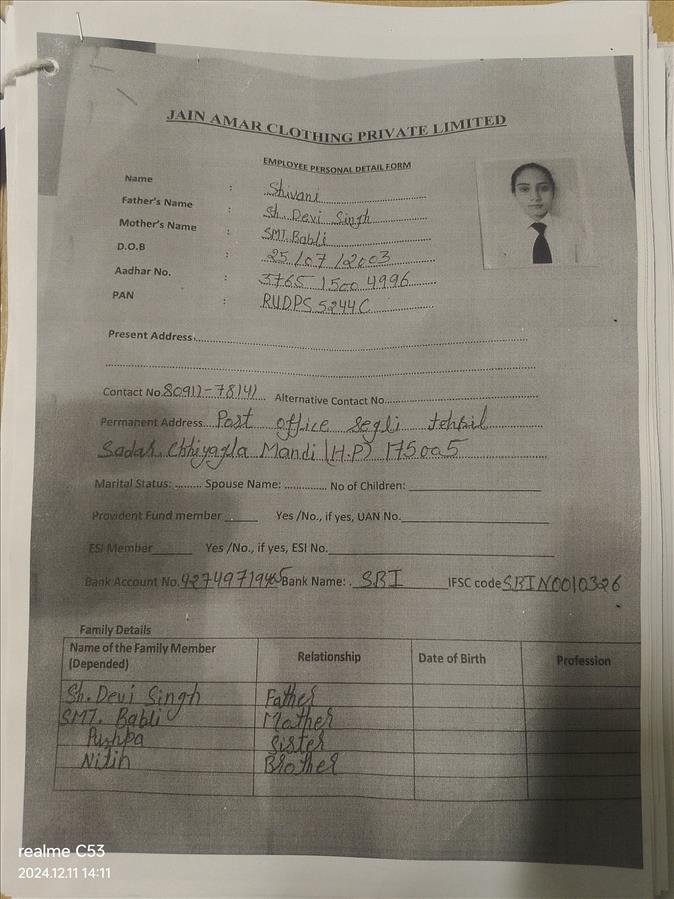 JAIN AMAR CLOTHING PRIVATE LIMITED
EMPLOYEE PERSONAL DETAIL FORM
Name : Shivani
Father's Name : Sh. Devi Singh
Mother's Name : SMT. Babli
D.O.B : 25/07/2003
Aadhar No. : 3765 1500 4996
PAN : RUDPS 5244C
Present Address:
Contact No. 80911-78141 Alternative Contact No.
Permanent Address Post office segli tehsil
Sadar Chhiyagla Mandi (H.P) 175005
Marital Status: ......... Spouse Name: ............. No of Children:
Provident Fund member ______ Yes /No., if yes, UAN No.
ESI Member ______ Yes /No., if yes, ESI No.
Bank Account No. 42749719465 Bank Name: . SBI IFSC code SBIN0010326
Family Details
Name of the Family Member (Depended) Relationship Date of Birth Profession
Sh. Devi Singh Father
SMT. Babli Mother
Pushpa Sister
Nitin Brother
realme C53
2024.12.11 14:11